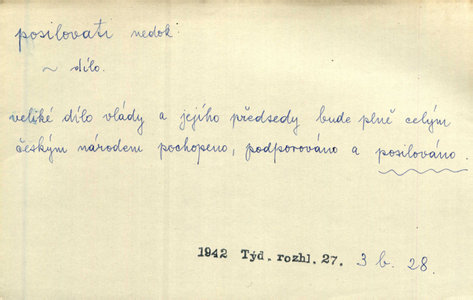 posilovati nedok.
~ dílo.
veliké dílo vlády a jejího předsedy bude plně celým
českým národem pochopeno, podporováno a posilováno.
1942 Týd. rozhl. 27. 3 b. 28.